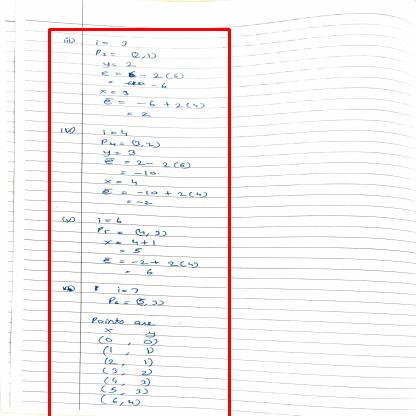 iii) i = 3
P3 = (2,1)
y = 2
e = 6 - 2(6)
= -6
x = 3
e = -6 + 2(4)
= 2
iv) i = 4
P4 = (3,2)
y = 3
e = 2 - 2(6)
= -10
x = 4
e = -10 + 2(4)
= -2
v) i = 6
P5 = (4,3)
x = 4+1
= 5
e = -2 + 2(4)
= 6
vi) i = 7
P6 = (5,3)
Points are
x y
(0 , 0)
(1 , 1)
(2 , 1)
(3 , 2)
(4 , 3)
(5 , 3)
(6, 4)